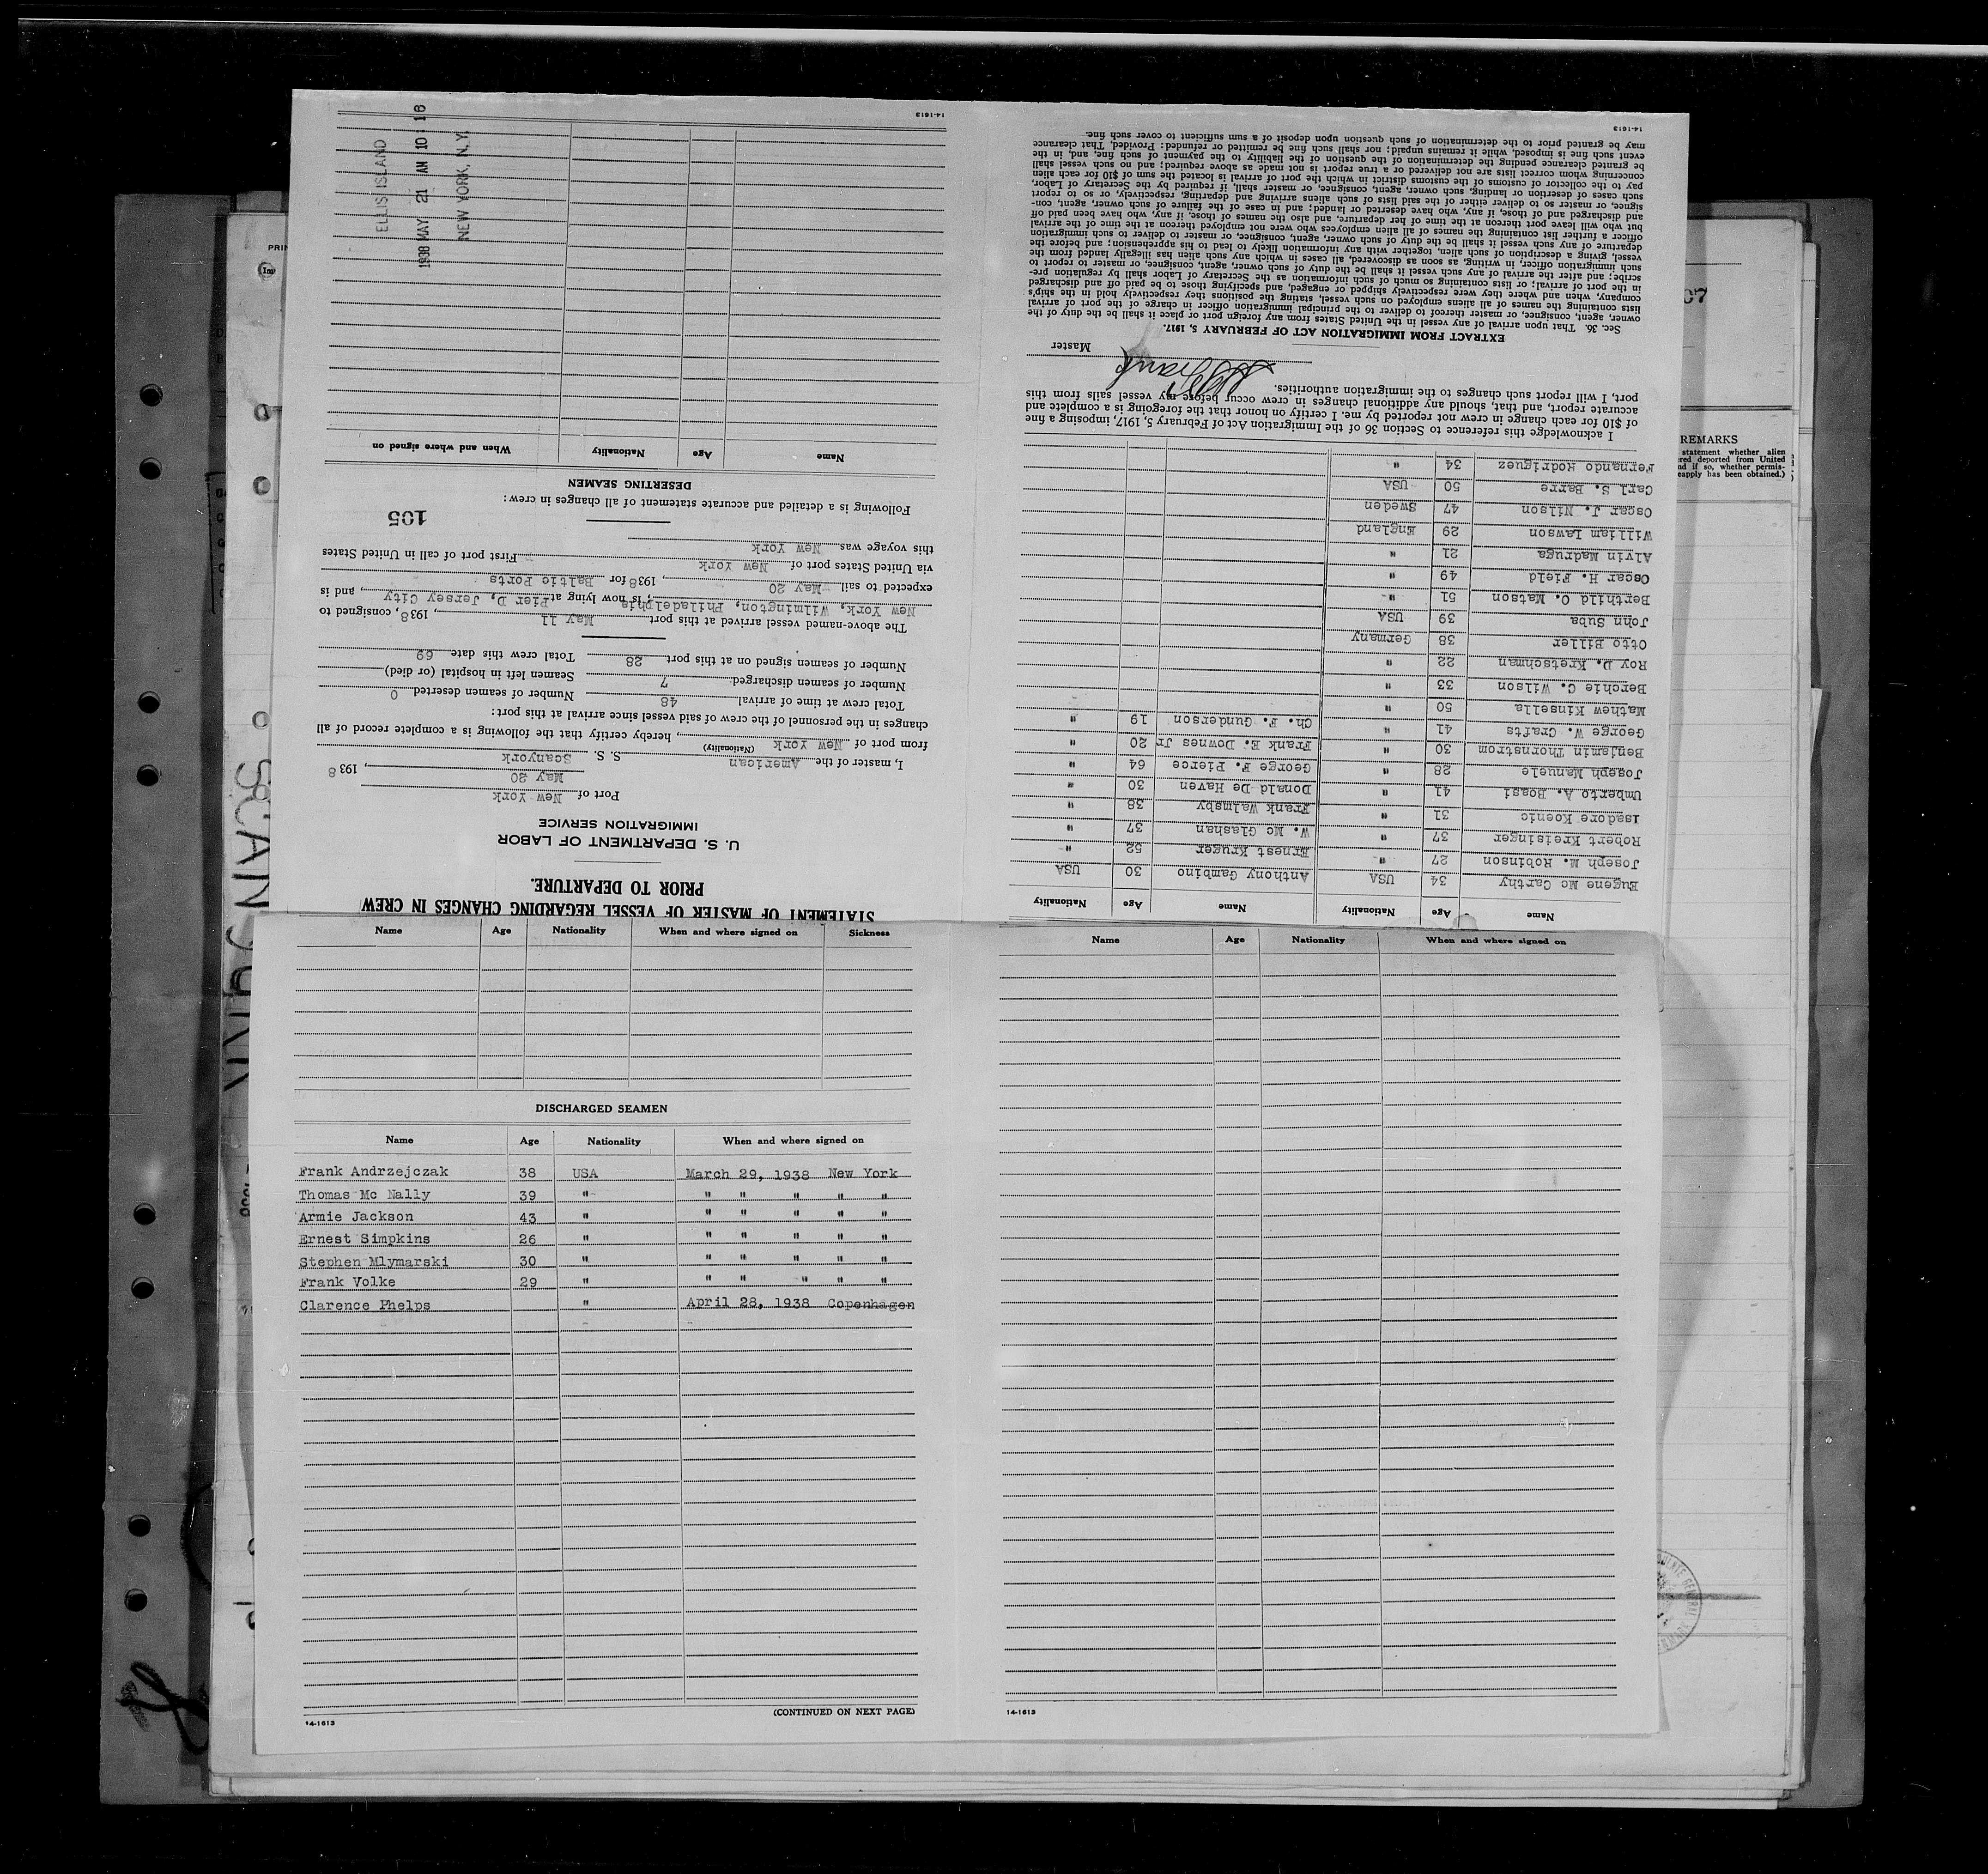 STATEMENT OF MASTER OF VESSEL REGARDING CHANGES IN CREW
PRIOR TO DEPARTURE.
U. S. DEPARTMENT OF LABOR
IMMIGRATION SERVICE
Port of New York
May 20, 1938
I, master of the American S. S. Scanyork
(Nationality)
from port of New York, hereby certify that the following is a complete record of all
changes in the personnel of the crew of said vessel since arrival at this port:
Total crew at time of arrival 48 Number of seamen deserted 0
Number of seamen discharged 7 Seamen left in hospital (or died)
Number of seamen signed on at this port 28 Total crew this date 69
The above-named vessel arrived at this port May 11, 1938, consigned to
New York, Wilmington, Philadelphia, is now lying at Pier D, Jersey City, and is
expected to sail May 20, 1938 for Baltic Ports
via United States port of New York First port of call in United States
this voyage was New York
105
Following is a detailed and accurate statement of all changes in crew:
DESERTING SEAMEN
Name Age Nationality When and where signed on
ELLIS ISLAND
1938 MAY 21 AM 10:16
NEW YORK, N.Y.
14-1613
Name Age Nationality Name Age Nationality
Eugene Mc Carthy 34 USA Anthony Gambino 30 USA
Joseph M. Robinson 27 " Ernest Kruger 52 "
Robert Kreisinger 37 " W. Mc Glashan 37 "
Isadore Koenic 31 " Frank Walmsby 38 "
Umberto A. Boasi 41 " Donald De Haven 30 "
Joseph Manuele 28 " George F. Pierce 64 "
Benjamin Thornstrom 30 " Frank E. Downes Jr 20 "
George W. Crafts 41 " Ch. F. Gunderson 19 "
Mathew Kinsella 50 "
Berchie C. Wilson 33 "
Roy D. Kretschman 22 "
Otto Biller 38 Germany
John Suba 39 USA
Berthild O. Matson 51 "
Oscar H. Field 49 "
Alvin Madruga 21 "
William Lawson 29 England
Oscar J. Nilson 47 Sweden
Carl S. Barre 50 USA
Fernando Rodriguez 34 "
I acknowledge this reference to Section 36 of the Immigration Act of February 5, 1917, imposing a fine
of $10 for each change in crew not reported by me. I certify on honor that the foregoing is a complete and
accurate report, and that, should any additional changes in crew occur before my vessel sails from this
port, I will report such changes to the immigration authorities.
Master
EXTRACT FROM IMMIGRATION ACT OF FEBRUARY 5, 1917.
Sec. 36. That upon arrival of any vessel in the United States from any foreign port or place it shall be the duty of the
owner, agent, consignee, or master thereof to deliver to the principal immigration officer in charge of the port of arrival
lists containing the names of all aliens employed on such vessel, stating the positions they respectively hold in the ship's
company, when and where they were respectively shipped or engaged, and specifying those to be paid off and discharged
in the port of arrival; or lists containing so much of such information as the Secretary of Labor shall by regulation pre-
scribe; and after the arrival of any such vessel it shall be the duty of such owner, agent, consignee, or master to report to
such immigration officer, in writing, as soon as discovered, all cases in which any such alien has illegally landed from the
vessel, giving a description of such alien, together with any information likely to lead to his apprehension; and before the
departure of any such vessel it shall be the duty of such owner, agent, consignee, or master to deliver to such immigration
officer a further list containing the names of all alien employees who were not employed thereon at the time of the arrival
but who will leave port thereon at the time of her departure, and also the names of those, if any, who have been paid off
and discharged and of those, if any, who have deserted or landed; and in case of the failure of such owner, agent, con-
signee, or master so to deliver either of the said lists of such aliens arriving and departing, respectively, or so to report
such cases of desertion or landing, such owner, agent, consignee, or master shall, if required by the Secretary of Labor,
pay to the collector of customs of the customs district in which the port of arrival is located the sum of $10 for each alien
concerning whom correct lists are not delivered or a true report is not made as above required; and no such vessel shall
be granted clearance pending the determination of the question of the liability to the payment of such fine, and, in the
event such fine is imposed, while it remains unpaid; nor shall such fine be remitted or refunded: Provided, That clearance
may be granted prior to the determination of such question upon deposit of a sum sufficient to cover such fine.
14-1613
REMARKS
statement whether alien
red deported from United
nd if so, whether permis-
eapply has been obtained.)
Name Age Nationality When and where signed on Sickness
DISCHARGED SEAMEN
Name Age Nationality When and where signed on
Frank Andrzejczak 38 USA March 29, 1938 New York
Thomas Mc Nally 39 " " " " " "
Armie Jackson 43 " " " " " "
Ernest Simpkins 26 " " " " " "
Stephen Mlymarski 30 " " " " " "
Frank Volke 29 " " " " " "
Clarence Phelps " April 28, 1938 Copenhagen
(CONTINUED ON NEXT PAGE)
14-1613
Name Age Nationality When and where signed on
14-1613